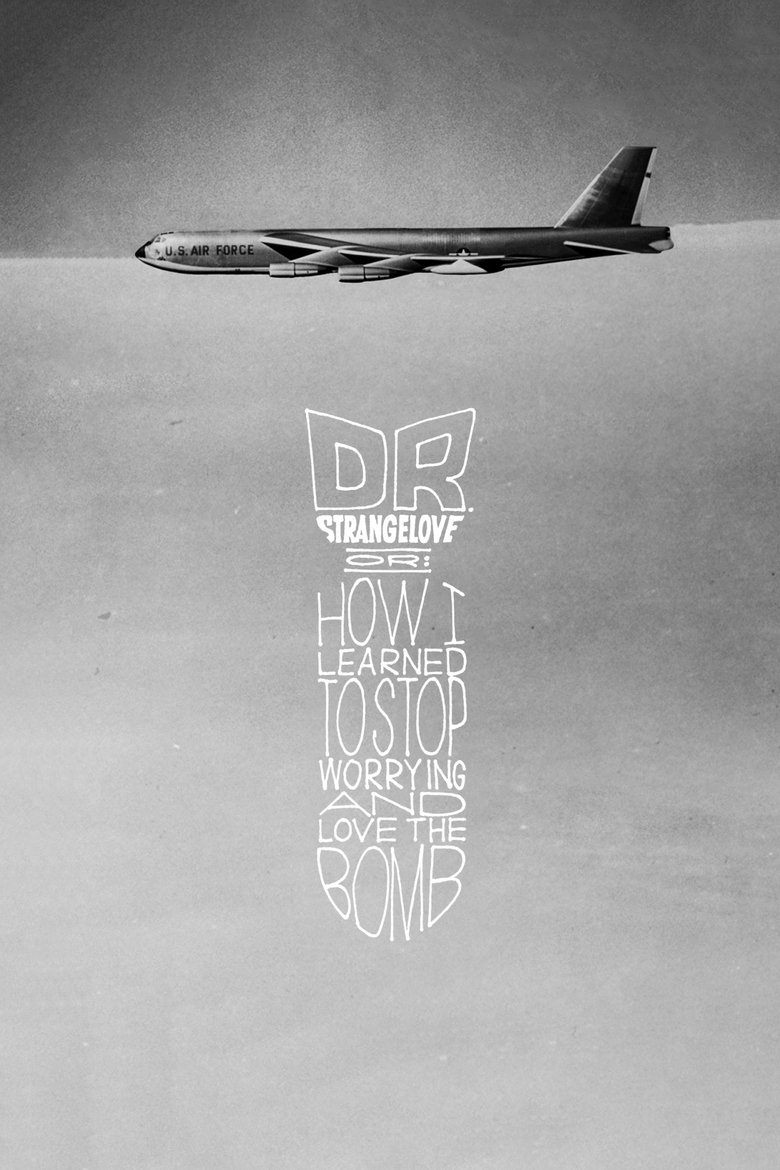 U.S. AIR FORCE
DR.
STRANGELOVE
OR:
HOW I
LEARNED
TO STOP
WORRYING
AND
LOVE THE
BOMB